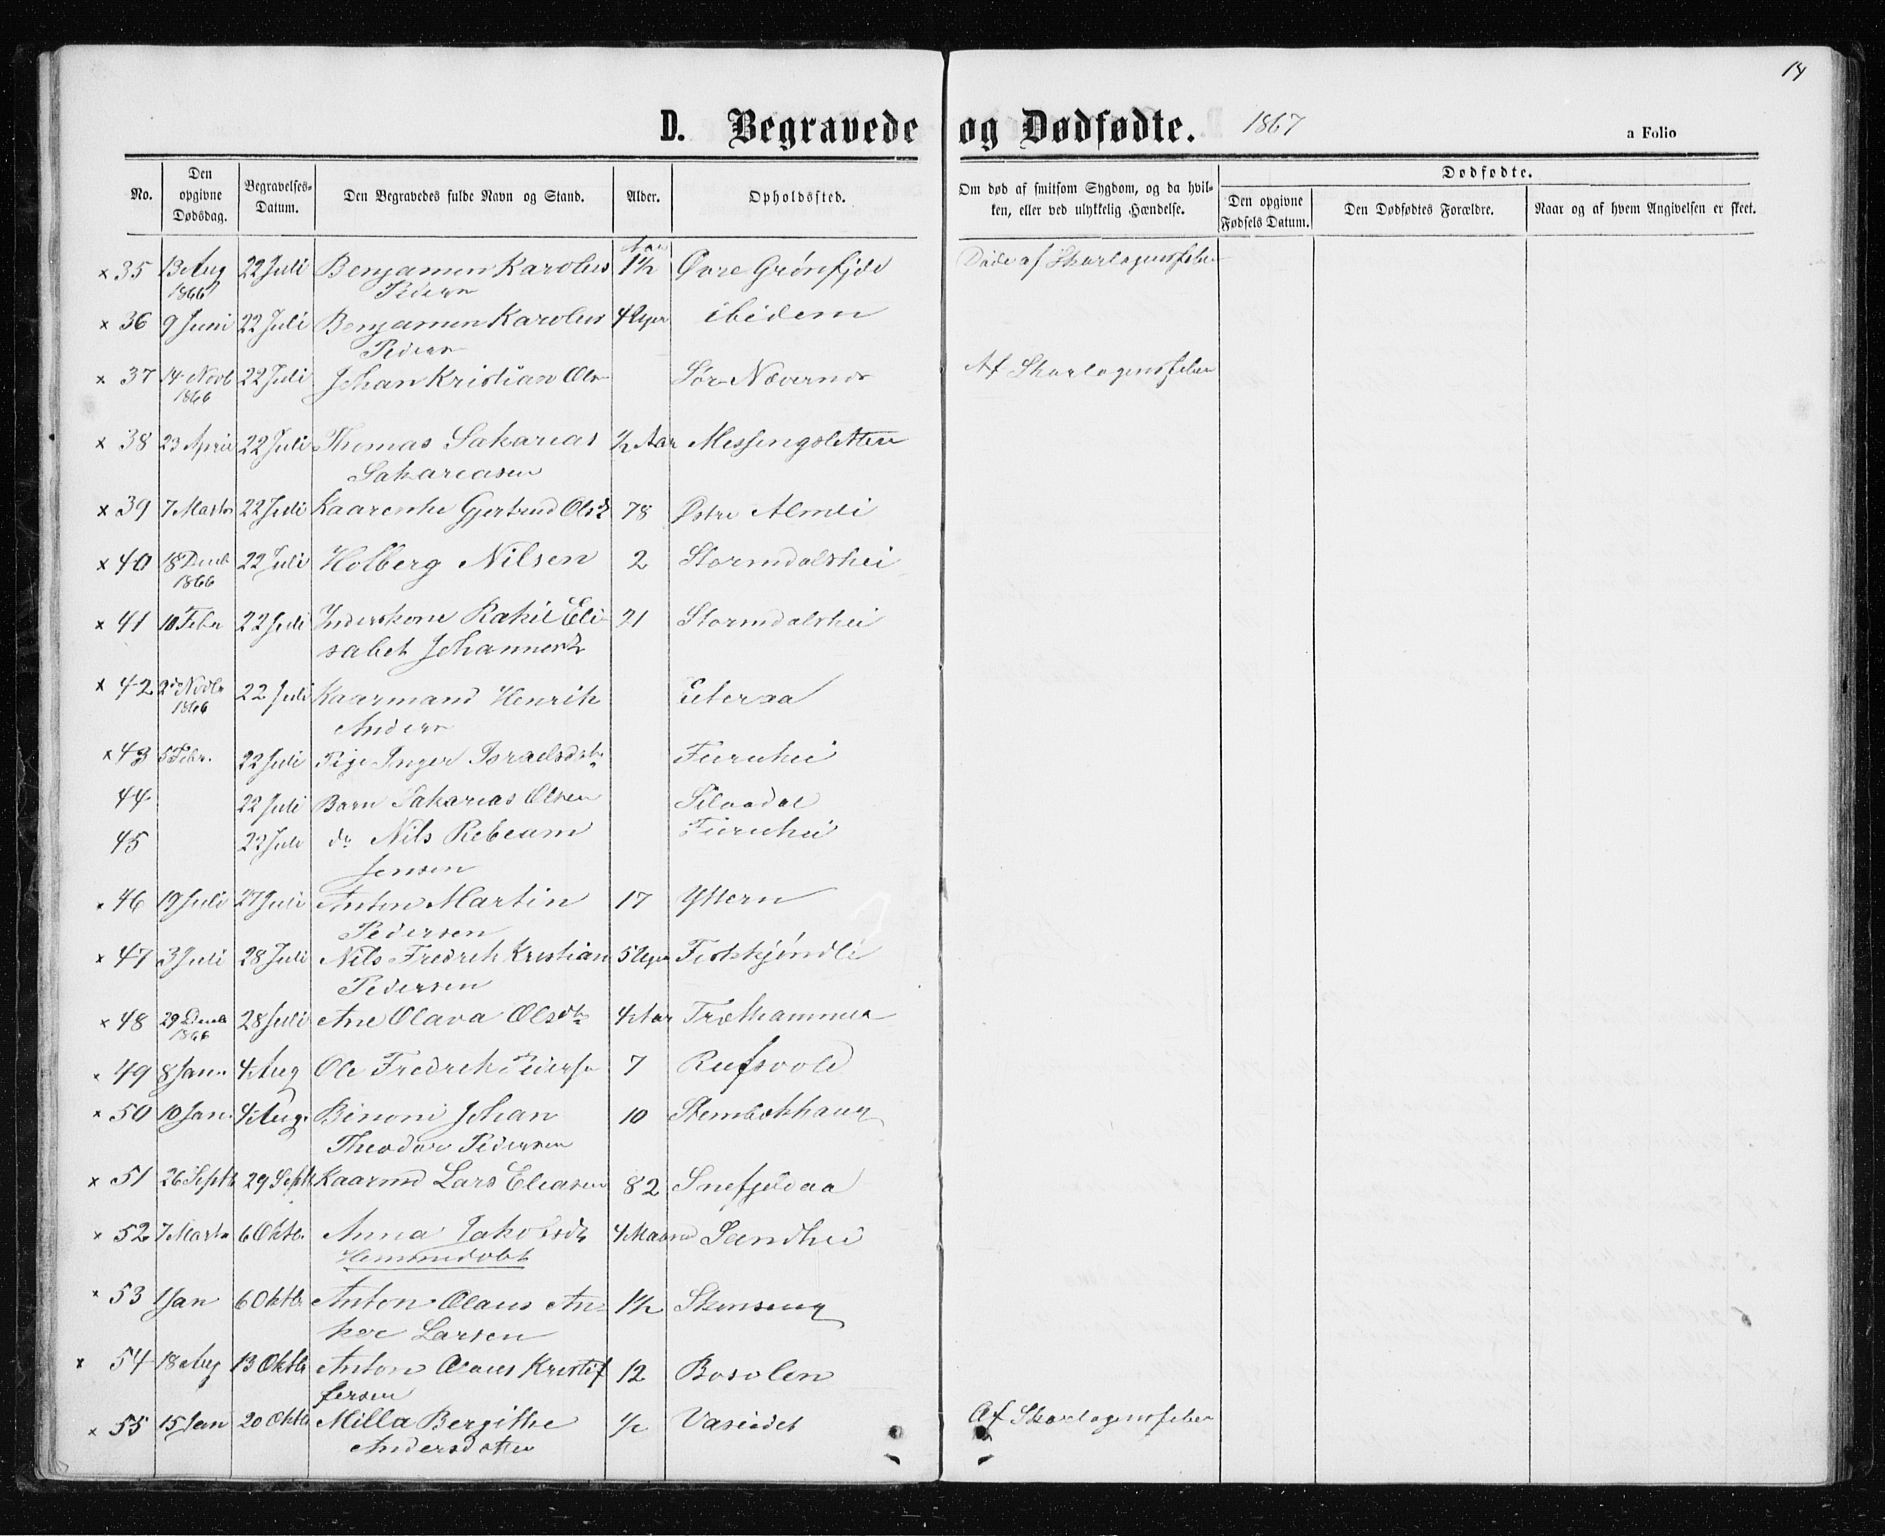 14
D. Begravede og Dødfødte. 1867 a Folio
No. Den opgivne Dødsdag. Begravelses-Datum. Den Begravedes fulde Navn og Stand. Alder. Opholdssted. Om død af smitsom Sygdom, og da hvilken, eller ved ulykkelig Hændelse. Dødfødte. Den opgivne Fødsels Datum. Den Dødfødtes Forældre. Naar og af hvem Angivelsen er skeet.
Aar
× 35 13 Aug 22 Juli Benjamen Karolus 1½ Øvre Grønfjeld Døde af Skarlagensfeber
1866 Peders
× 36 9 Juni 22 Juli Benjamen Karolus 4 Uger ibidem
Peders
× 37 14 Novb 22 Juli Johan Kristian Ols Sør Næverness Af Skarlagensfeber
1866
× 38 23 April 22 Juli Thomas Sakarias ½ Aar Messingsletten
Sakariasen
× 39 7 Marts 22 Juli Kaarenke Gjertrud Olsd 78 Østre Almli
× 40 18 Decb 22 Juli Holberg Nilsen 2 Stormdalshei
1866
× 41 10 Febr 22 Juli Inderskone Rakil Eli 21 Stormdalshei
sabet Johannesd
× 42 Novbr 22 Juli Kaarmand Henrik Eiteraa
1866 Anders
× 43 5 Febr. 22 Juli Pige Inger Israelsdtr Furuhei
44 22 Juli Barn Sakarias Olsen
45 22 Juli do Nils Rebeum Furuhei
Jensen
× 46 19 Juli 27 Juli Anton Martin 17 Yttern
Pedersen
× 47 3 Juli 28 Juli Nils Fredrik Kristian 5 Uger Fiskkjøndli
Pedersen
× 48 29 Decb 28 Juli Ane Olava Olsdtr 4 Aar Træthammer
1866
× 49 8 Jan. 4 Aug Ole Fredrik Peders 7 Rufsvold
× 50 10 Jan. 4 Aug. Binoni Johan 10 Stenbækhaug
Theodor Pedersen
× 51 26 Septb 29 Septb Kaarmd Lars Eliasen 82 Snefjeldaa
× 52 7 Marts 6 Oktb. Anna Jakobsdtr 4 Maaned Sandhei
Hemmedøbt
× 53 1 Jan 6 Oktb. Anton Olaus An- 1½ Stenseng
ker Larsen
× 54 18 Aug 13 Oktb Anton Olaus Kristof 12 Bosolen
fersen
× 55 15 Jan 20 Oktb Milla Bergithe ½ Af Skarlagensfeber
Andersdatter